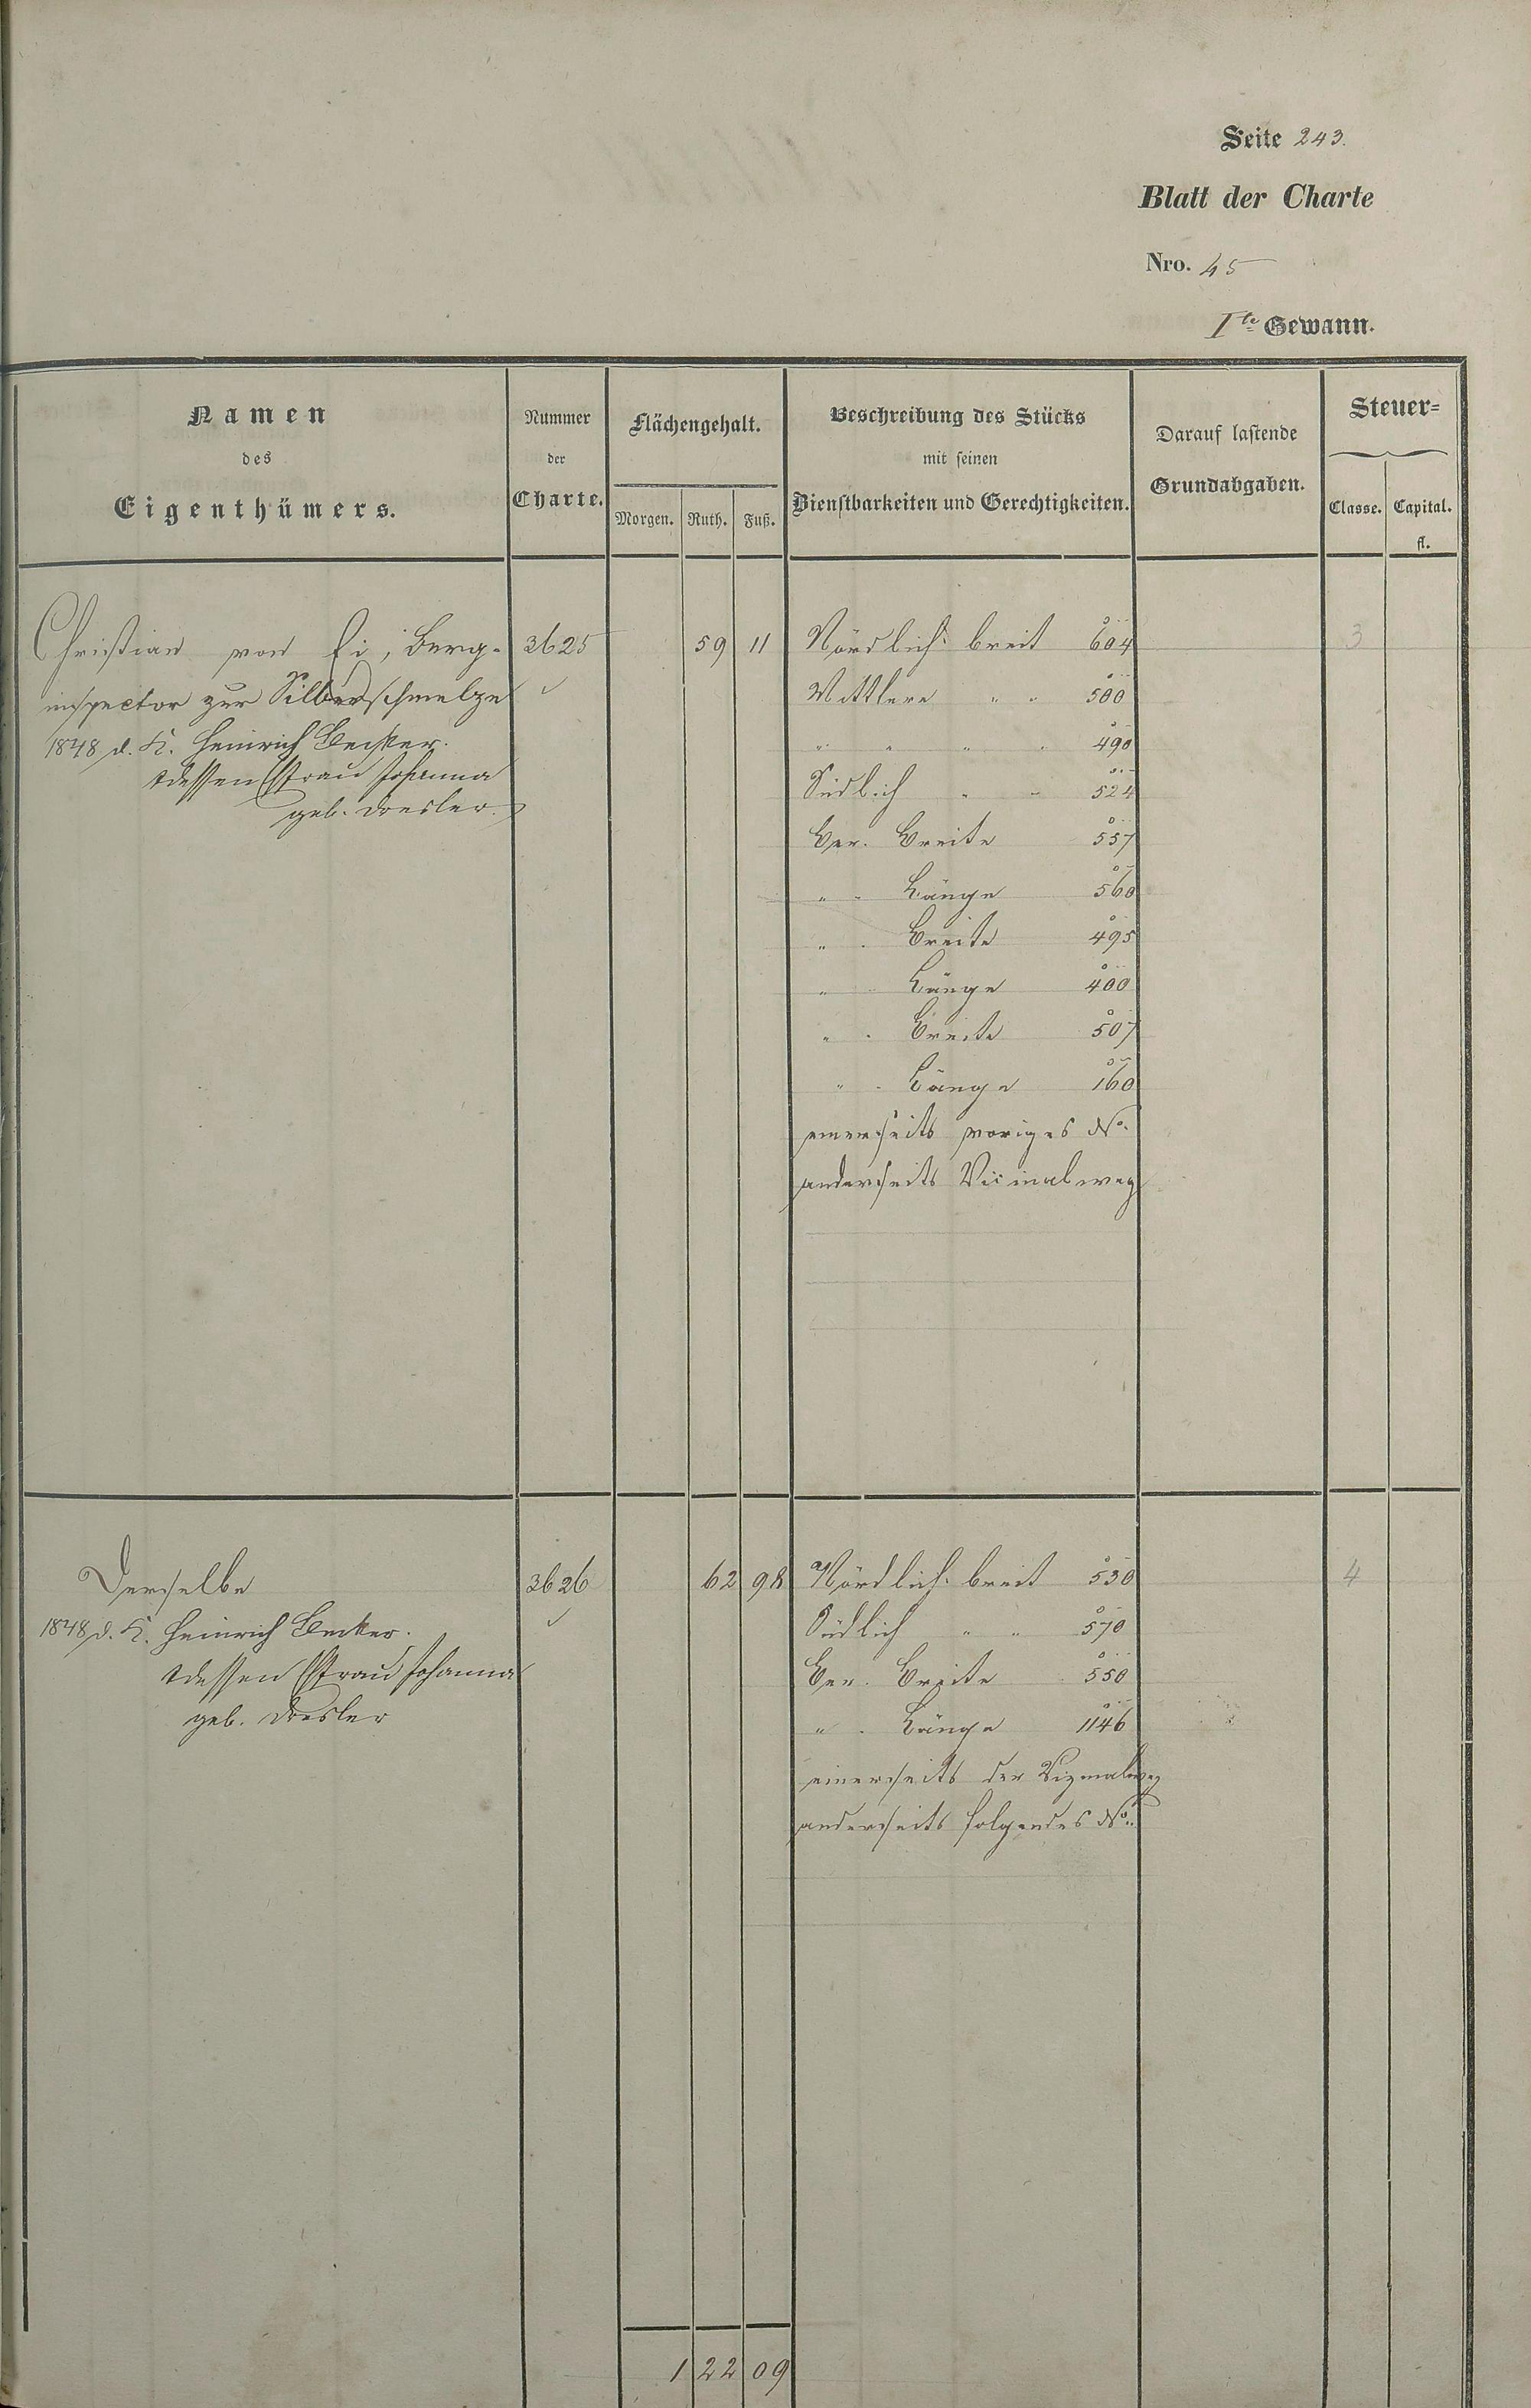 Seite 243.
Blatt der Charte
Nro. 45
Ite Gewann.
Namen
des
Eigenthümers.
Nummer
der
Charte.
Flächengehalt.
Morgen. Ruth. Fuß.
Beschreibung des Stücks
mit seinen
Dienstbarkeiten und Gerechtigkeiten.
Darauf lastende
Grundabgaben.
Steuer-
Classe. Capital.
fl.
Christian von Ei, Berg- 3625 59 11 Nördlich breit 604 3
inspector zur Silberschmelze Mittlere " " 500
1848 d. K. Heinrich Becker. " " " " 490
dessen Ehefrau Johanna Südlich " " 524
geb. Dresler. Ver. Breite 557
" " Länge 560
" " Breite 495
" " Länge 400
" " Breite 507
" " Länge 160
einerseits voriges No.
anderseits Vicinalweg
Derselbe 3626 62 98 Nördlich breit 530 4
1848 d. K. Heinrich Becker. Südlich " " 570
dessen Ehefrau Johanna Ver. Breite 550
geb. Dresler " " Länge 1146
einerseits der Vizinalweg
anderseits folgendes No.
1 22 09